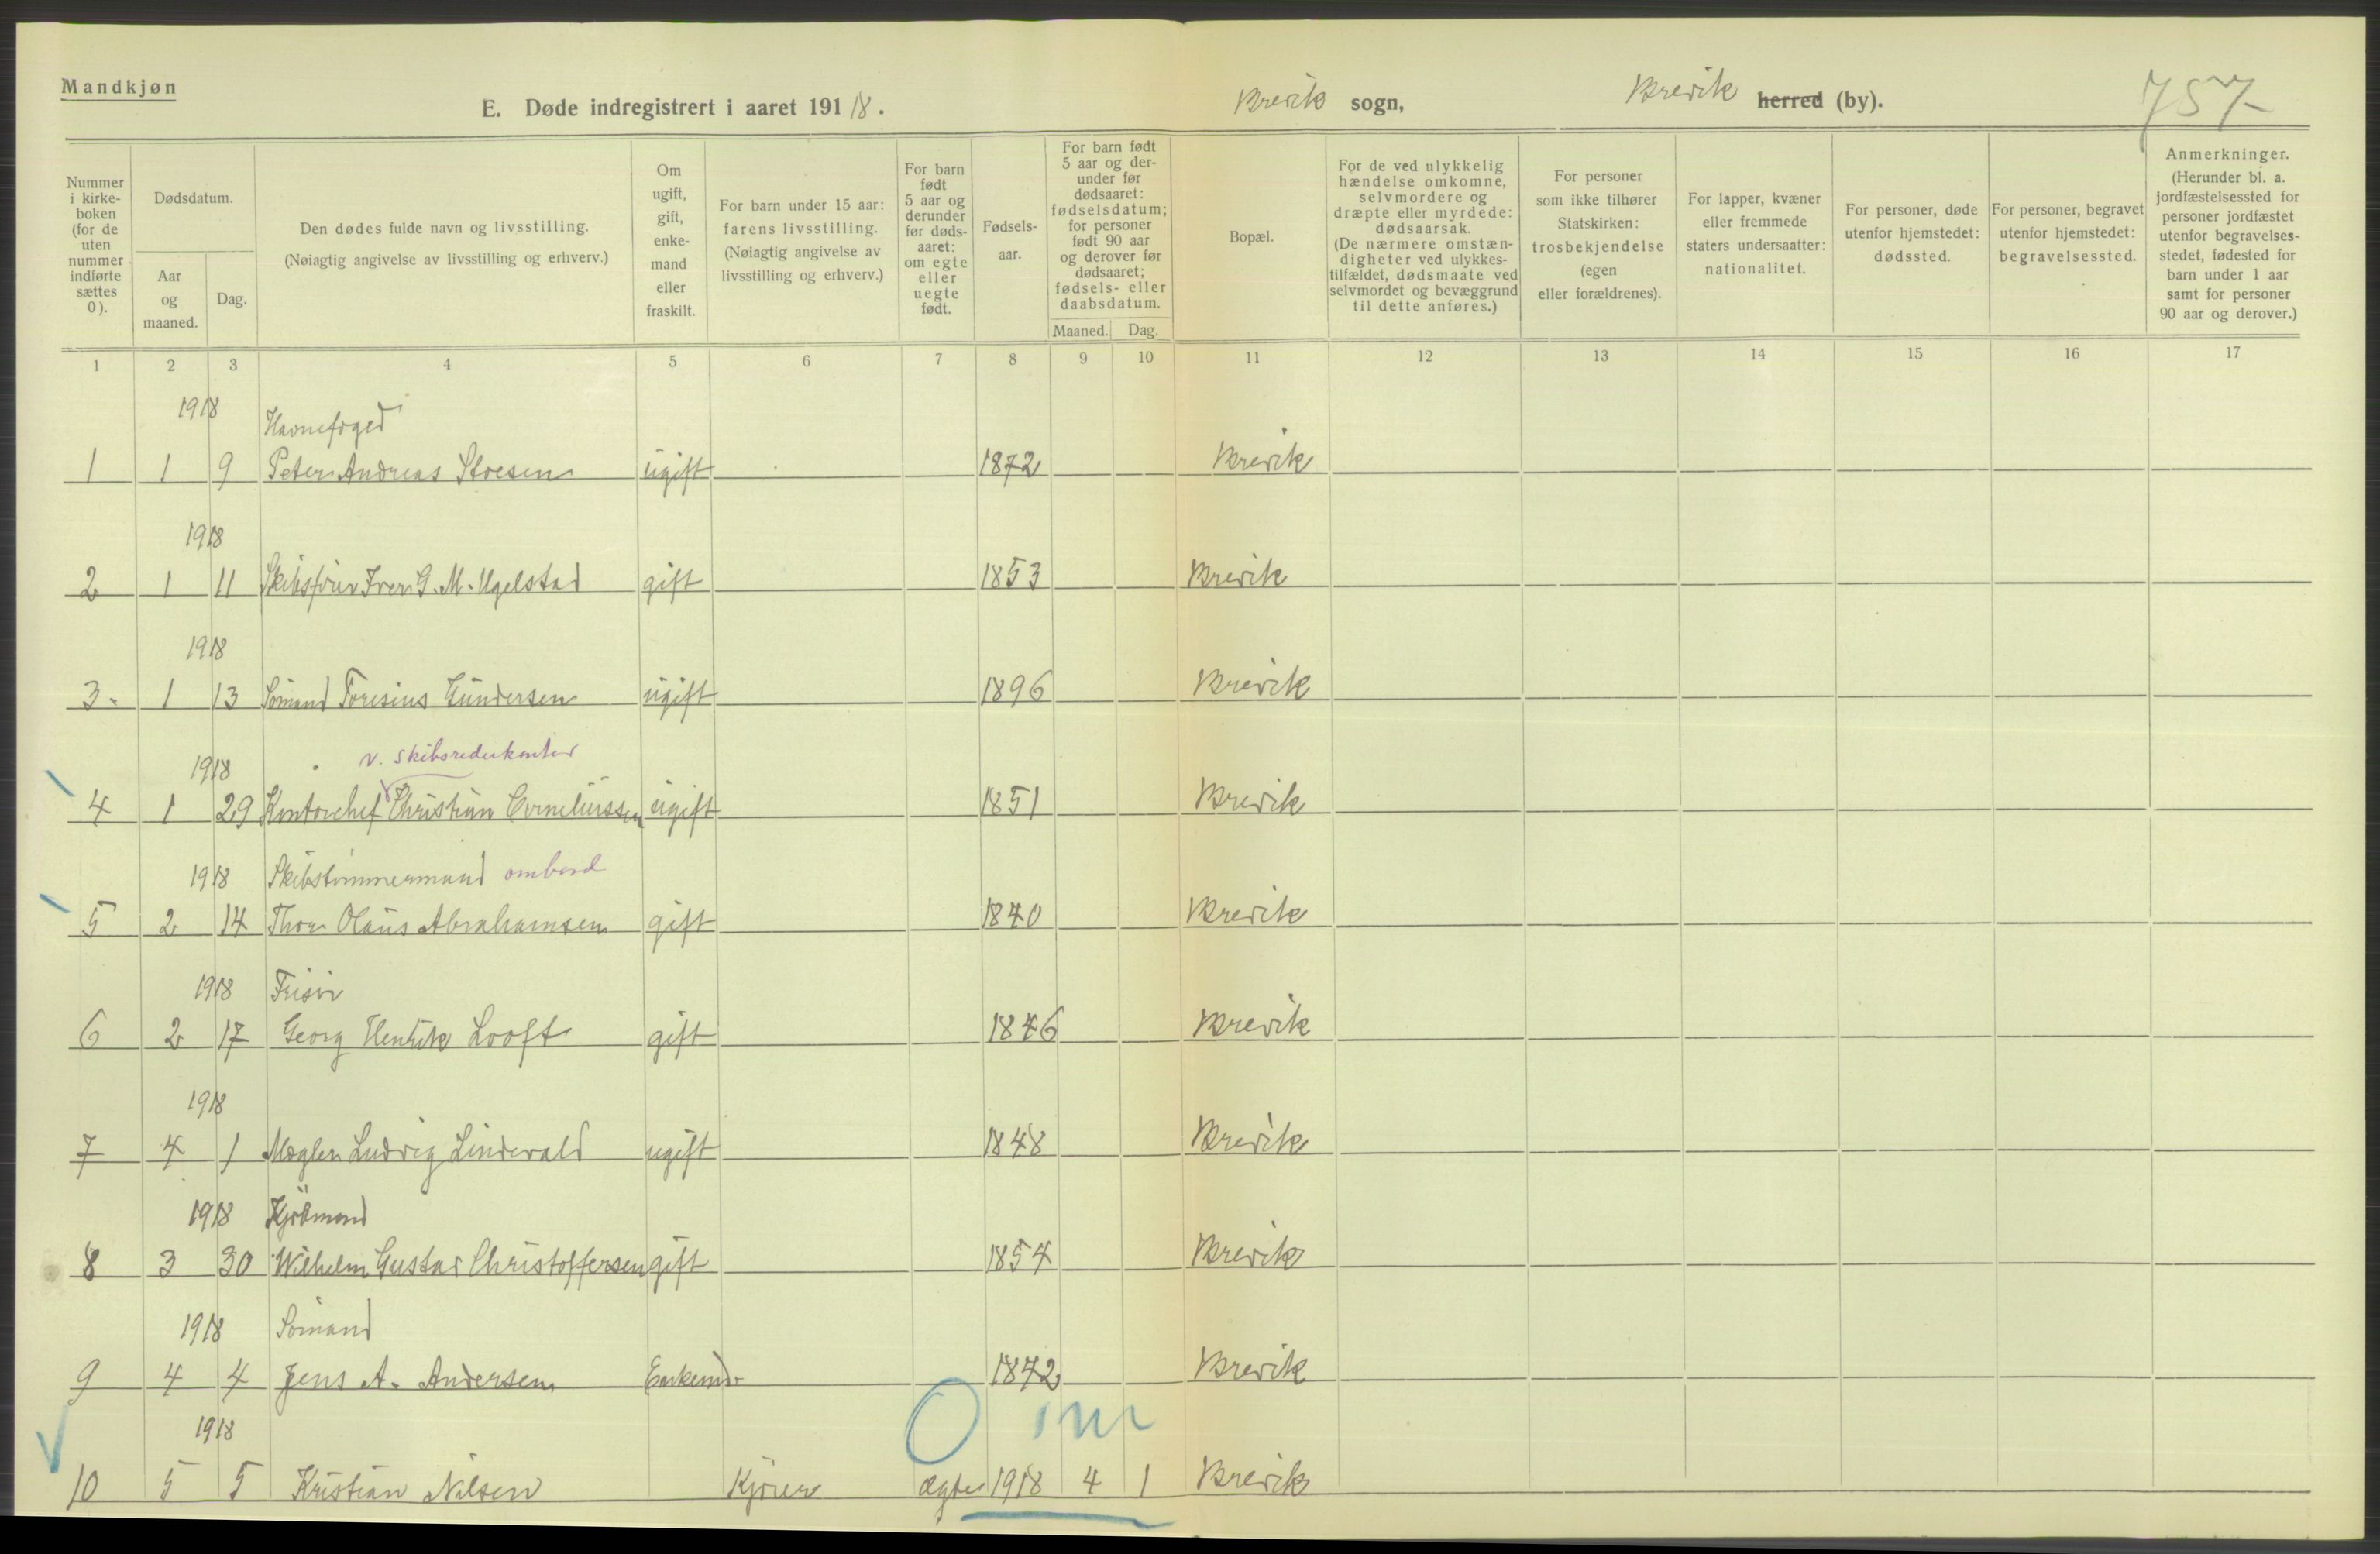 Mandkjøn
E. Døde indregistrert i aaret 1918.
Brevik sogn,
Brevik herred (by).
757
Nummer i kirke-boken (for de uten nummer indførte sættes 0).
Dødsdatum.
Aar og maaned.
Dag.
Den dødes fulde navn og livsstilling.
(Nøiagtig angivelse av livsstilling og erhverv.)
Om ugift, gift, enke-mand eller fraskilt.
For barn under 15 aar: farens livsstilling.
(Nøiagtig angivelse av livsstilling og erhverv.)
For barn født 5 aar og derunder før døds-aaret: om egte eller uegte født.
Fødsels-aar.
For barn født 5 aar og der-under før dødsaaret: fødselsdatum; for personer født 90 aar og derover før dødsaaret; fødsels- eller daabsdatum.
Maaned.
Dag.
Bopæl.
For de ved ulykkelig hændelse omkomne, selvmordere og dræpte eller myrdede: dødsaarsak.
(De nærmere omstæn-digheter ved ulykkes-tilfældet, dødsmaate ved selvmordet og bevæggrund til dette anføres.)
For personer som ikke tilhører Statskirken: trosbekjendelse (egen eller forældrenes).
For lapper, kvæner eller fremmede staters undersaatter: nationalitet.
For personer, døde utenfor hjemstedet: dødssted.
For personer, begravet utenfor hjemstedet: begravelsessted.
Anmerkninger.
(Herunder bl. a. jordfæstelsessted for personer jordfæstet utenfor begravelses-stedet, fødested for barn under 1 aar samt for personer 90 aar og derover.)
1 2 3 4 5 6 7 8 9 10 11 12 13 14 15 16 17
1918 Havnefoged
1 1 9 Peter Andreas Stoesen ugift 1872 Brevik
1918
2 1 11 Skibsfører Iver G. M. Ugelstad gift 1853 Brevik
1918
3. 1 13 Sømand Toresius Gundersen ugift 1896 Brevik
1918 v. skibsrederkontor
4 1 29 Kontorchef Christian Corneliussen ugift 1851 Brevik
1918 Skibstømmermand ombord
5 2 14 Thor Olaus Abrahamsen gift 1840 Brevik
1918 Frisør
6 2 17 Georg Henrik Looft gift 1846 Brevik
1918
7 4 1 Mægler Ludvig Lindevald ugift 1848 Brevik
1918 Kjøbmand
8 3 30 Wilhelm Gustav Christoffersen gift 1854 Brevik
1918 Sømand
9 4 4 Jens A. Andersen Enkemd. 1872 Brevik
1918 0 1 m
10 5 5 Kristian Nilsen Kjører ægte 1918 4 1 Brevik